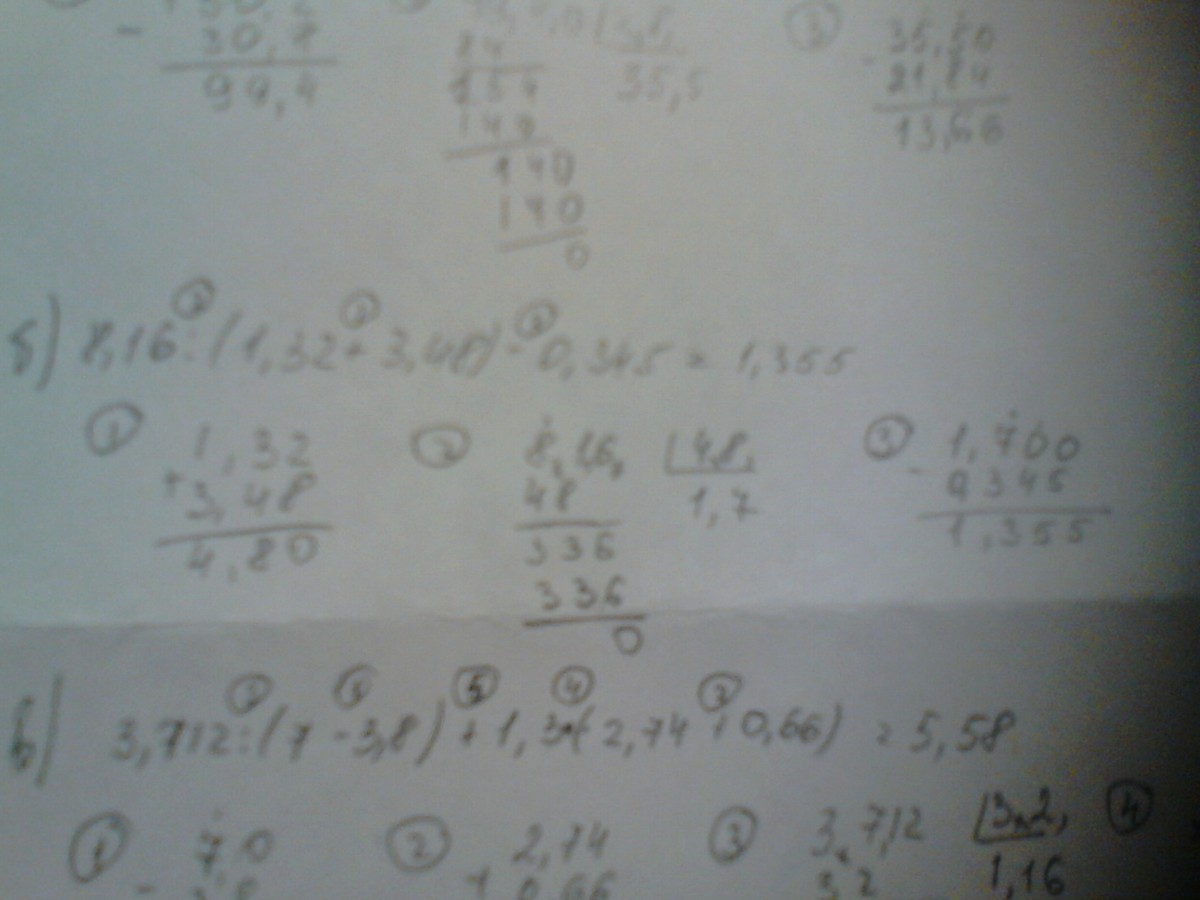 - 30,8
99,4
35,5
③
35,50
- 21,84
13,66
140
140
0
б) 8,16 : (1,32 + 3,48) - 0,345 = 1,355
① 1,32
+ 3,48
4,80
② 8,16 | 4,8
48 1,7
336
336
0
③ 1,700
- 0,345
1,355
в) 3,712 : (7 - 3,8) + 1,3 · (2,74 + 0,66) = 5,58
① 7,0
② 2,74
+ 0,66
③ 3,712 | 3,2
3,2 1,16
④